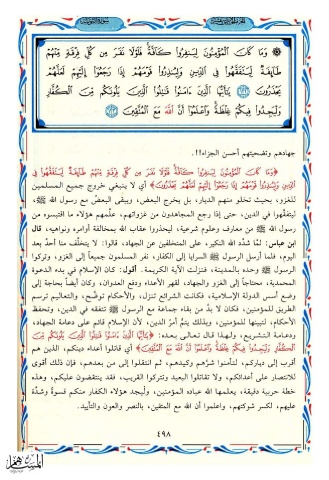 وَمَا كَانَ الْمُؤْمِنُونَ لِيَنفِرُوا كَافَّةً فَلَوْلَا نَفَرَ مِن كُلِّ فِرْقَةٍ مِّنْهُمْ
طَائِفَةٌ لِّيَتَفَقَّهُوا فِي الدِّينِ وَلِيُنذِرُوا قَوْمَهُمْ إِذَا رَجَعُوا إِلَيْهِمْ لَعَلَّهُمْ
يَحْذَرُونَ ﴿١٢٢﴾ يَا أَيُّهَا الَّذِينَ آمَنُوا قَاتِلُوا الَّذِينَ يَلُونَكُم مِّنَ الْكُفَّارِ
وَلْيَجِدُوا فِيكُمْ غِلْظَةً وَاعْلَمُوا أَنَّ اللَّهَ مَعَ الْمُتَّقِينَ ﴿١٢٣﴾
جهادهم وتضحيتهم أحسن الجزاء!!.
﴿وَمَا كَانَ الْمُؤْمِنُونَ لِيَنفِرُوا كَافَّةً فَلَوْلَا نَفَرَ مِن كُلِّ فِرْقَةٍ مِّنْهُمْ طَائِفَةٌ لِّيَتَفَقَّهُوا فِي
الدِّينِ وَلِيُنذِرُوا قَوْمَهُمْ إِذَا رَجَعُوا إِلَيْهِمْ لَعَلَّهُمْ يَحْذَرُونَ﴾ أي لا ينبغي خروج جميع المسلمين
للغزو، بحيث تخلو منهم الديار، بل يخرج البعض، ويبقى البعض مع رسول الله ﷺ،
ليتفقهوا في الدين، حتى إذا رجع المجاهدون من غزواتهم، علّمهم هؤلاء ما اقتبسوه من
رسول الله ﷺ من معارف وعلوم شرعية، ليحذروا عقاب الله بمخالفة أوامره ونواهيه، قال
ابن عباس: لمّا شدّد الله النكير، على المتخلفين عن الجهاد، قالوا: لا يتخلّف منا أحدٌ بعد
اليوم، فلما أرسل الرسول ﷺ السرايا إلى الكفار، نفر المسلمون جميعاً إلى الغزو، وتركوا
الرسول ﷺ وحده بالمدينة، فنزلت الآية الكريمة. أقول: كان الإسلام في بدء الدعوة
المحمدية، محتاجاً إلى الغزو والجهاد، لقهر الأعداء ودفع العدوان، وكان أيضاً بحاجة إلى
وضع أسس الدولة الإسلامية، فكانت الشرائع تنزل، والأحكام توضَّح، والتعاليم ترسم
الطريق للمؤمنين، فكان لا بدَّ من بقاء جماعة مع الرسول ﷺ تتفقه في الدين، وتحفظ
الأحكام، لتبينها للمؤمنين، وبذلك يتمُّ أمرُ الدين، لأن الإسلام قائم على دعامة الجهاد،
ودعامة التشريع، ولهذا قال تعالى بعده: ﴿يَا أَيُّهَا الَّذِينَ آمَنُوا قَاتِلُوا الَّذِينَ يَلُونَكُم مِّنَ
الْكُفَّارِ وَلْيَجِدُوا فِيكُمْ غِلْظَةً وَاعْلَمُوا أَنَّ اللَّهَ مَعَ الْمُتَّقِينَ﴾ أي قاتلوا أعداء دينكم، الذين هم
أقرب إلى دياركم، لتأمنوا شرَّهم وكيدهم، ثم انتقلوا إلى من بعدهم، فإن ذلك أقوى
للانتصار على أعدائكم، ولا تقاتلوا البعيد وتتركوا القريب، فقد ينتفضون عليكم، وهذه
خطة حربية دقيقة، يعلمها الله عباده المؤمنين، وليجد هؤلاء الكفار منكم قسوةً وشدَّة
عليهم، لكسر شوكتهم، واعلموا أن الله مع المتقين، بالنصر والعون والتأييد.
٤٩٨